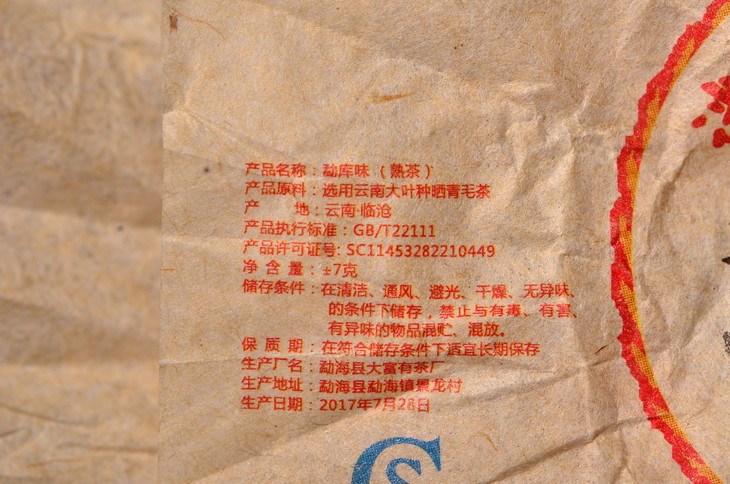 产品名称：勐库味（熟茶）
产品原料：选用云南大叶种晒青毛茶
产 地：云南·临沧
产品执行标准：GB/T22111
产品许可证号：SC11453282210449
净 含 量：±7克
储存条件：在清洁、通风、避光、干燥、无异味、
的条件下储存，禁止与有毒、有害、
有异味的物品混贮、混放。
保 质 期：在符合储存条件下适宜长期保存
生产厂名：勐海县大富有茶厂
生产地址：勐海县勐海镇景龙村
生产日期：2017年7月28日